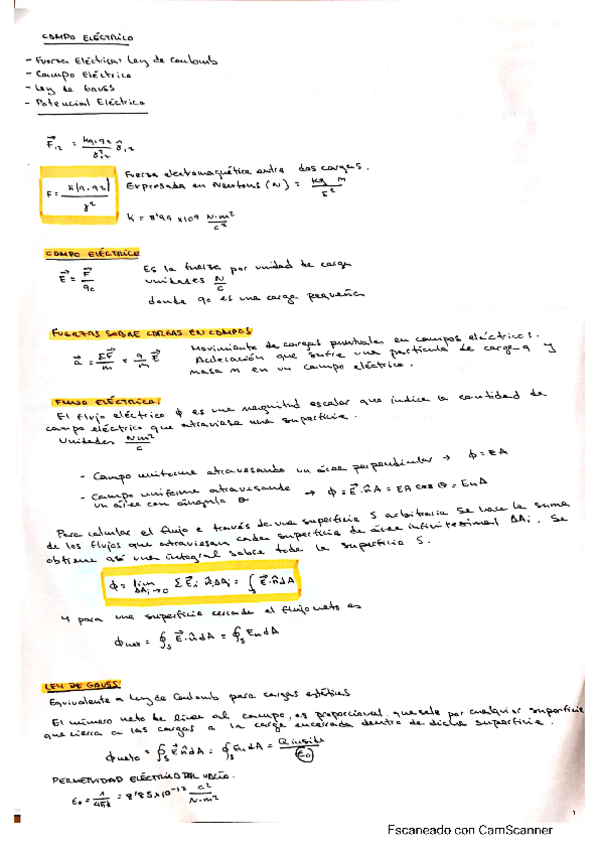 CAMPO ELÉCTRICO
- Fuerza Eléctrica: Ley de Coulomb
- Campo Eléctrico
- Ley de Gauss
- Potencial Eléctrico
F⃗₁₂ = kq₁q₂/r²₁₂ r̂₁₂
Fuerza electromagnética entre dos cargas.
Expresada en Newtons (N) = kg m/s²
F = k|q₁q₂|/r²
K = 8'99 x10⁹ N·m²/C²
CAMPO ELÉCTRICO
E⃗ = F⃗/q₀
Es la fuerza por unidad de carga
unidades N/C
donde q₀ es una carga pequeña
FUERZAS SOBRE CARGAS EN CAMPOS
Movimiento de cargas puntuales en campos eléctricos.
a⃗ = ΣF⃗/m = q/m E⃗
Aceleración que sufre una partícula de carga q y
masa m en un campo eléctrico.
FLUJO ELÉCTRICO:
El flujo eléctrico ϕ es una magnitud escalar que indica la cantidad de
campo eléctrico que atraviesa una superficie.
Unidades Nm²/C
- Campo uniforme atravesando un área perpendicular → ϕ = EA
- Campo uniforme atravesando
un área con ángulo θ → ϕ = E⃗·n̂A = EA cos θ = EnA
Para calcular el flujo a través de una superficie S arbitraria se hace la suma
de los flujos que atraviesan cada superficie de área infinitesimal ΔAi. Se
obtiene así una integral sobre toda la superficie S.
ϕ = lim ΔAi→0 Σ E⃗i n̂i ΔAi = ∫s E⃗·n̂dA
Y para una superficie cerrada el flujo neto es
ϕnet = ∮s E⃗·n̂dA = ∮s EndA
LEY DE GAUSS
Equivalente a Ley de Coulomb para cargas estáticas
El número neto de líneas al campo, es proporcional, que sale por cualquier superficie
que cierra a las cargas a la carga encerrada dentro de dicha superficie.
ϕneto = ∮s E⃗n̂dA = ∮s EndA = Qinside/ε₀
PERMITIVIDAD ELÉCTRICA DEL VACÍO.
ε₀ = 1/4πk = 8'85x10⁻¹² C²/N·m²
1
Escaneado con CamScanner